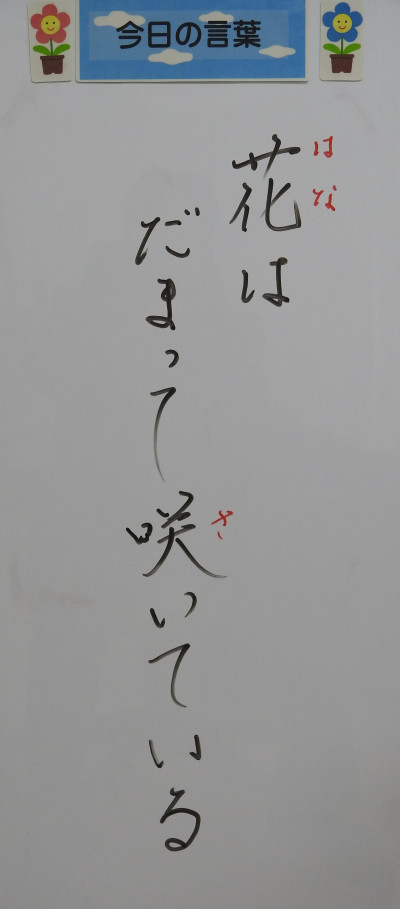 今日の言葉
花は
はな
だまって咲いている
さ